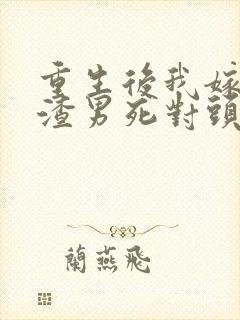 重生後我嫁
渣男死對頭
蘭燕飛